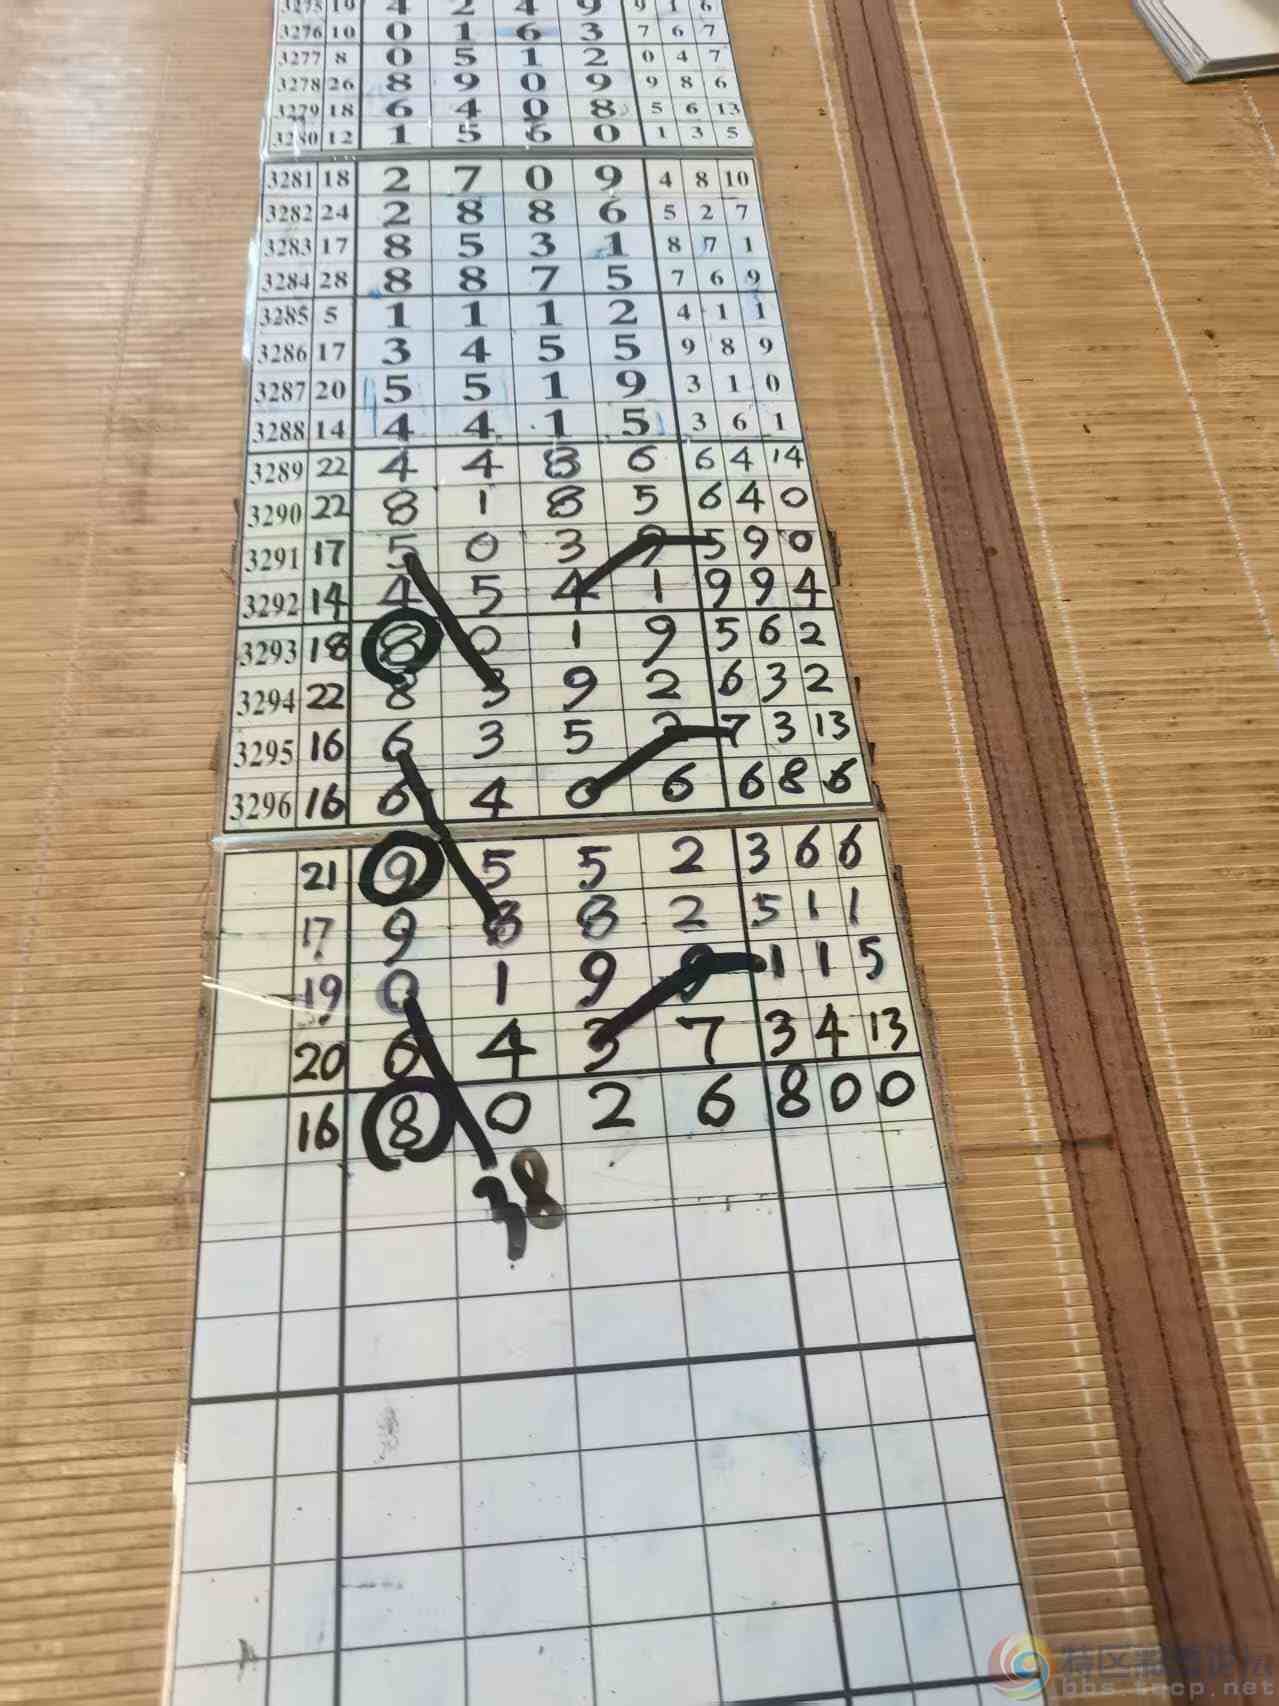 3275 19 4 2 4 9 9 1 6
3276 10 0 1 6 3 7 6 7
3277 8 0 5 1 2 0 4 7
3278 26 8 9 0 9 9 8 6
3279 18 6 4 0 8 5 6 13
3280 12 1 5 6 0 1 3 5
3281 18 2 7 0 9 4 8 10
3282 24 2 8 8 6 5 2 7
3283 17 8 5 3 1 8 7 1
3284 28 8 8 7 5 7 6 9
3285 5 1 1 1 2 4 1 1
3286 17 3 4 5 5 9 8 9
3287 20 5 5 1 9 3 1 0
3288 14 4 4 1 5 3 6 1
3289 22 4 4 8 6 6 4 14
3290 22 8 1 8 5 6 4 0
3291 17 5 0 3 9 5 9 0
3292 14 4 5 4 1 9 9 4
3293 18 8 0 1 9 5 6 2
3294 22 8 3 9 2 6 3 2
3295 16 6 3 5 2 7 3 13
3296 16 6 4 0 6 6 8 6
21 9 5 5 2 3 6 6
17 9 8 2 5 1 1
19 0 1 9 9 1 1 5
20 6 4 3 7 3 4 13
16 8 0 2 6 8 0 0
38
特区彩票论坛
bbs.tccp.net